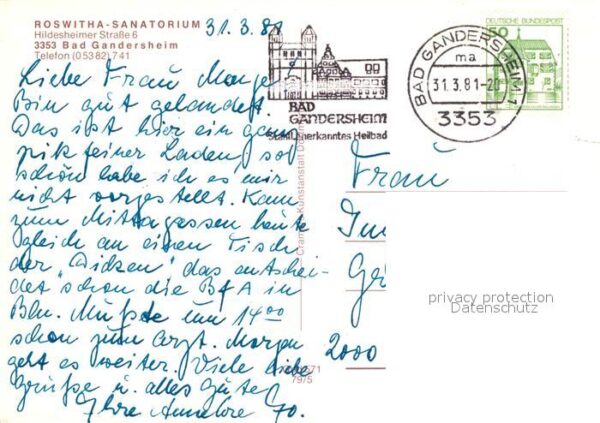 ROSWITHA-SANATORIUM
Hildesheimer Straße 6
3353 Bad Gandersheim
Telefon (05382) 741
31.3.81
Liebe Frau
Bin gut gelandet.
Das ist hier ein ganz
pikfeiner Laden, so
schön habe ich es mir
nicht vorgestellt. Kam
zum Mittagessen heute
gleich an einen Tisch
der "Dicken" das entschei-
det schon die BfA in
Bln. Mußte um 14 00
schon zum Arzt. Morgen
geht es weiter. Viele liebe
Grüße u. alles Gute
Ihre Annelore
BAD
GANDERSHEIM
Staatl. anerkanntes Heilbad
BAD GANDERSHEIM 1
ma
31.3.81-20
3353
DEUTSCHE BUNDESPOST
50
Cramers Kunstanstalt
Frau
2000
79/5
privacy protection
Datenschutz